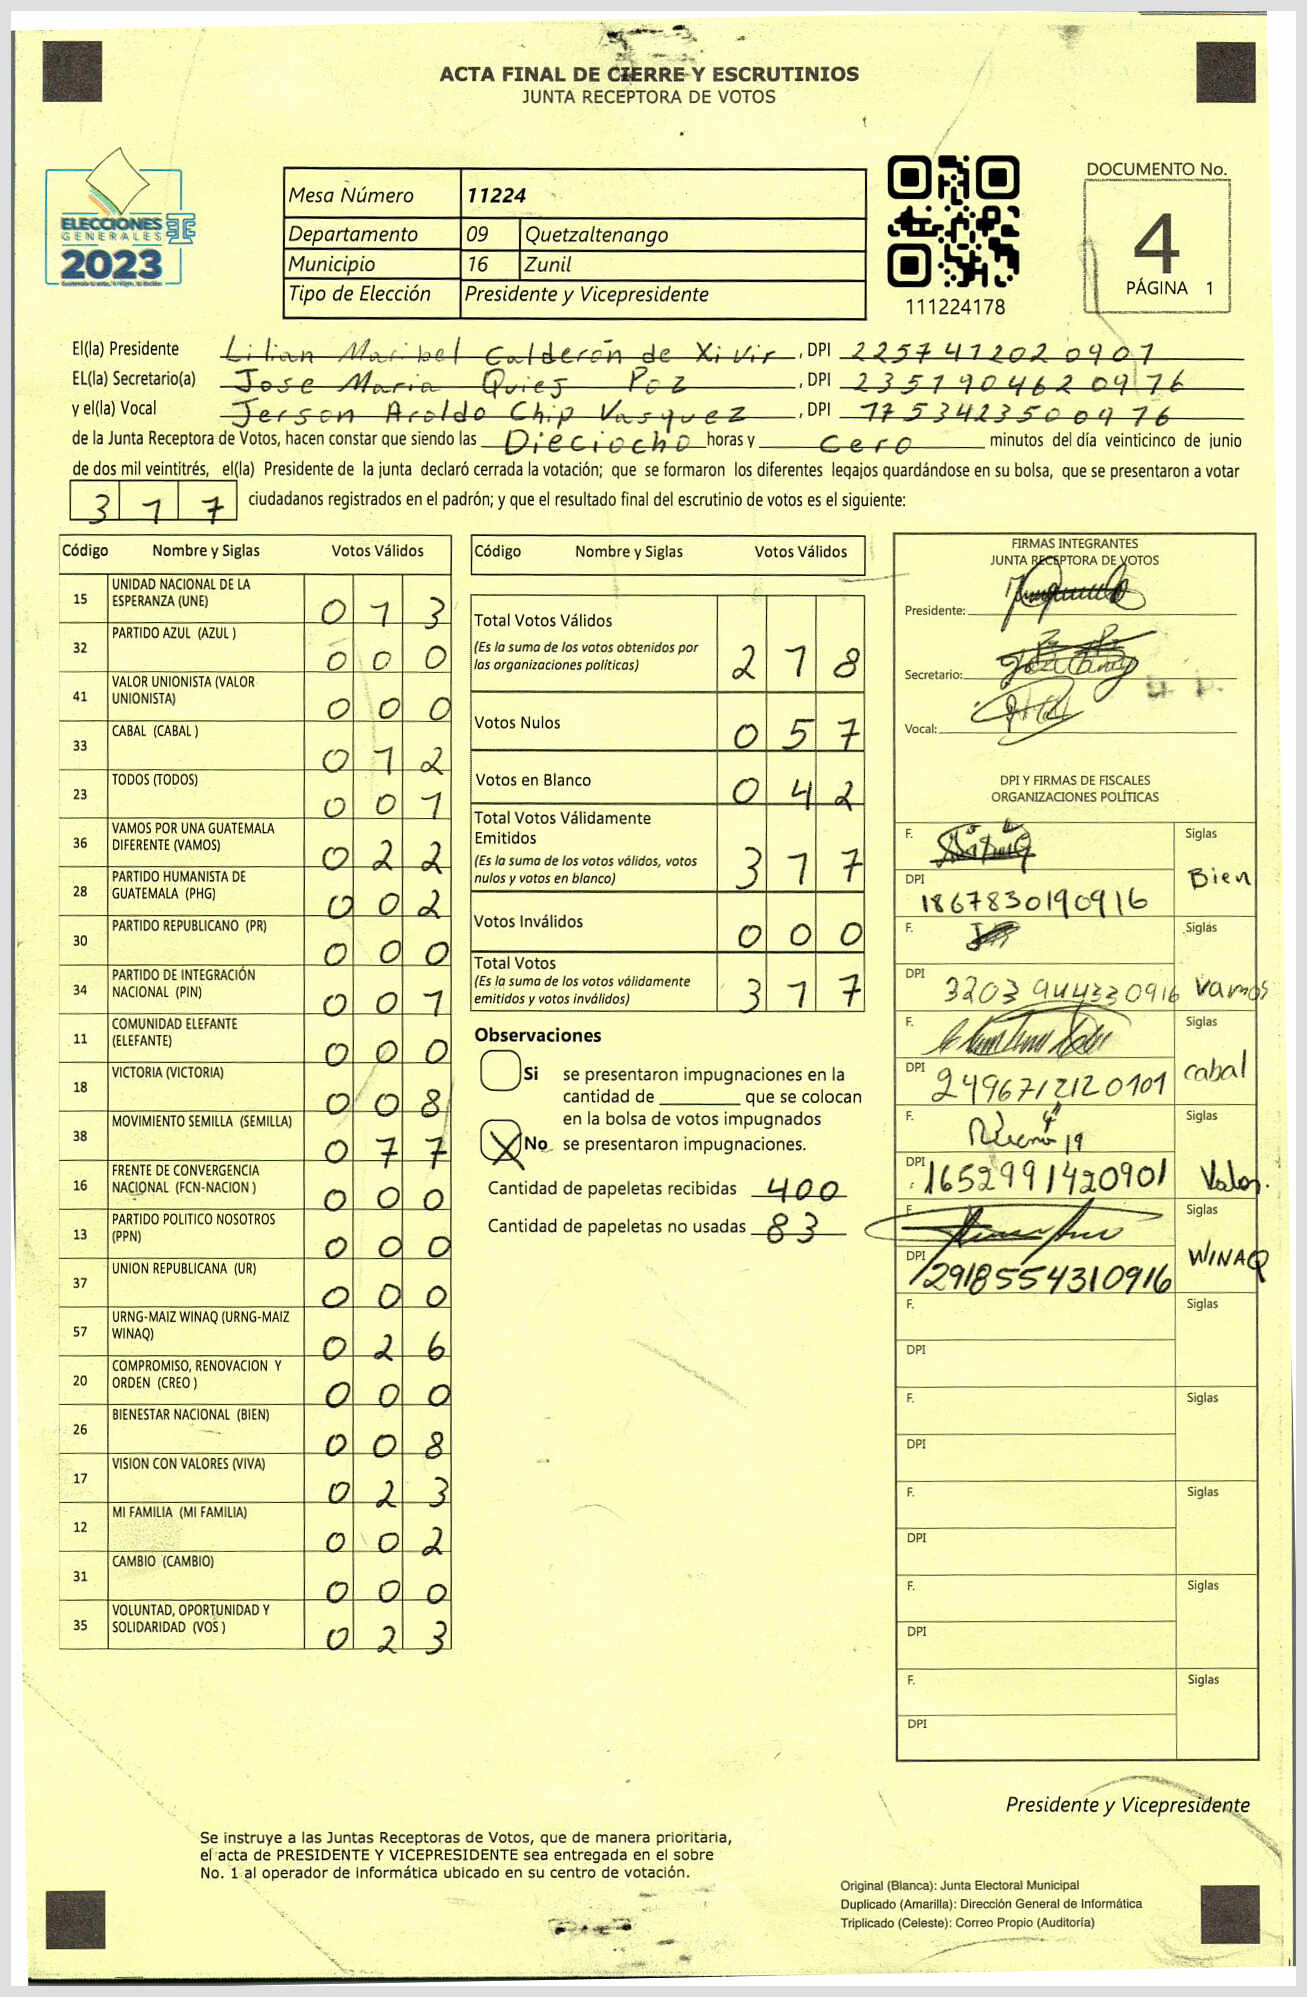 ACTA FINAL DE CIERRE Y ESCRUTINIOS
JUNTA RECEPTORA DE VOTOS
ELECCIONES
GENERALES
2023
Mesa Número 11224
Departamento 09 Quetzaltenango
Municipio 16 Zunil
Tipo de Elección Presidente y Vicepresidente
111224178
DOCUMENTO No.
4
PÁGINA 1
El(la) Presidente Lilian Maribel Calderón de Xivir, DPI 2257412020901
EL(la) Secretario(a) Jose Maria Quiej Poz, DPI 2351904620976
y el(la) Vocal Jerson Aroldo Chip Vasquez, DPI 1753423500976
de la Junta Receptora de Votos, hacen constar que siendo las Dieciocho horas y cero minutos del día veinticinco de junio
de dos mil veintitrés, el(la) Presidente de la junta declaró cerrada la votación; que se formaron los diferentes legajos guardándose en su bolsa, que se presentaron a votar
317 ciudadanos registrados en el padrón; y que el resultado final del escrutinio de votos es el siguiente:
Código Nombre y Siglas Votos Válidos
15 UNIDAD NACIONAL DE LA ESPERANZA (UNE) 073
32 PARTIDO AZUL (AZUL ) 000
41 VALOR UNIONISTA (VALOR UNIONISTA) 000
33 CABAL (CABAL ) 012
23 TODOS (TODOS) 001
36 VAMOS POR UNA GUATEMALA DIFERENTE (VAMOS) 022
28 PARTIDO HUMANISTA DE GUATEMALA (PHG) 002
30 PARTIDO REPUBLICANO (PR) 000
34 PARTIDO DE INTEGRACIÓN NACIONAL (PIN) 001
11 COMUNIDAD ELEFANTE (ELEFANTE) 000
18 VICTORIA (VICTORIA) 008
38 MOVIMIENTO SEMILLA (SEMILLA) 077
16 FRENTE DE CONVERGENCIA NACIONAL (FCN-NACION ) 000
13 PARTIDO POLITICO NOSOTROS (PPN) 000
37 UNION REPUBLICANA (UR) 000
57 URNG-MAIZ WINAQ (URNG-MAIZ WINAQ) 026
20 COMPROMISO, RENOVACION Y ORDEN (CREO ) 000
26 BIENESTAR NACIONAL (BIEN) 008
17 VISION CON VALORES (VIVA) 023
12 MI FAMILIA (MI FAMILIA) 002
31 CAMBIO (CAMBIO) 000
35 VOLUNTAD, OPORTUNIDAD Y SOLIDARIDAD (VOS ) 023
Código Nombre y Siglas Votos Válidos
Total Votos Válidos 218
(Es la suma de los votos obtenidos por
las organizaciones políticas)
Votos Nulos 057
Votos en Blanco 042
Total Votos Válidamente
Emitidos 317
(Es la suma de los votos válidos, votos
nulos y votos en blanco)
Votos Inválidos 000
Total Votos 317
(Es la suma de los votos válidamente
emitidos y votos inválidos)
Observaciones
Si se presentaron impugnaciones en la
cantidad de ________ que se colocan
en la bolsa de votos impugnados
X No se presentaron impugnaciones.
Cantidad de papeletas recibidas 400
Cantidad de papeletas no usadas 83
FIRMAS INTEGRANTES
JUNTA RECEPTORA DE VOTOS
Presidente:
Secretario:
Vocal:
DPI Y FIRMAS DE FISCALES
ORGANIZACIONES POLÍTICAS
F. Siglas
DPI 1867830190916 Bien
F. Siglas
DPI 3203944330916 Vamos
F. Siglas
DPI 2496712120101 cabal
F. Siglas
DPI 1652991420901 Valor.
F. Siglas
DPI 2918554310916 WINAQ
F. Siglas
DPI
F. Siglas
DPI
F. Siglas
DPI
F. Siglas
DPI
F. Siglas
DPI
Presidente y Vicepresidente
Se instruye a las Juntas Receptoras de Votos, que de manera prioritaria,
el acta de PRESIDENTE Y VICEPRESIDENTE sea entregada en el sobre
No. 1 al operador de informática ubicado en su centro de votación.
Original (Blanca): Junta Electoral Municipal
Duplicado (Amarilla): Dirección General de Informática
Triplicado (Celeste): Correo Propio (Auditoría)